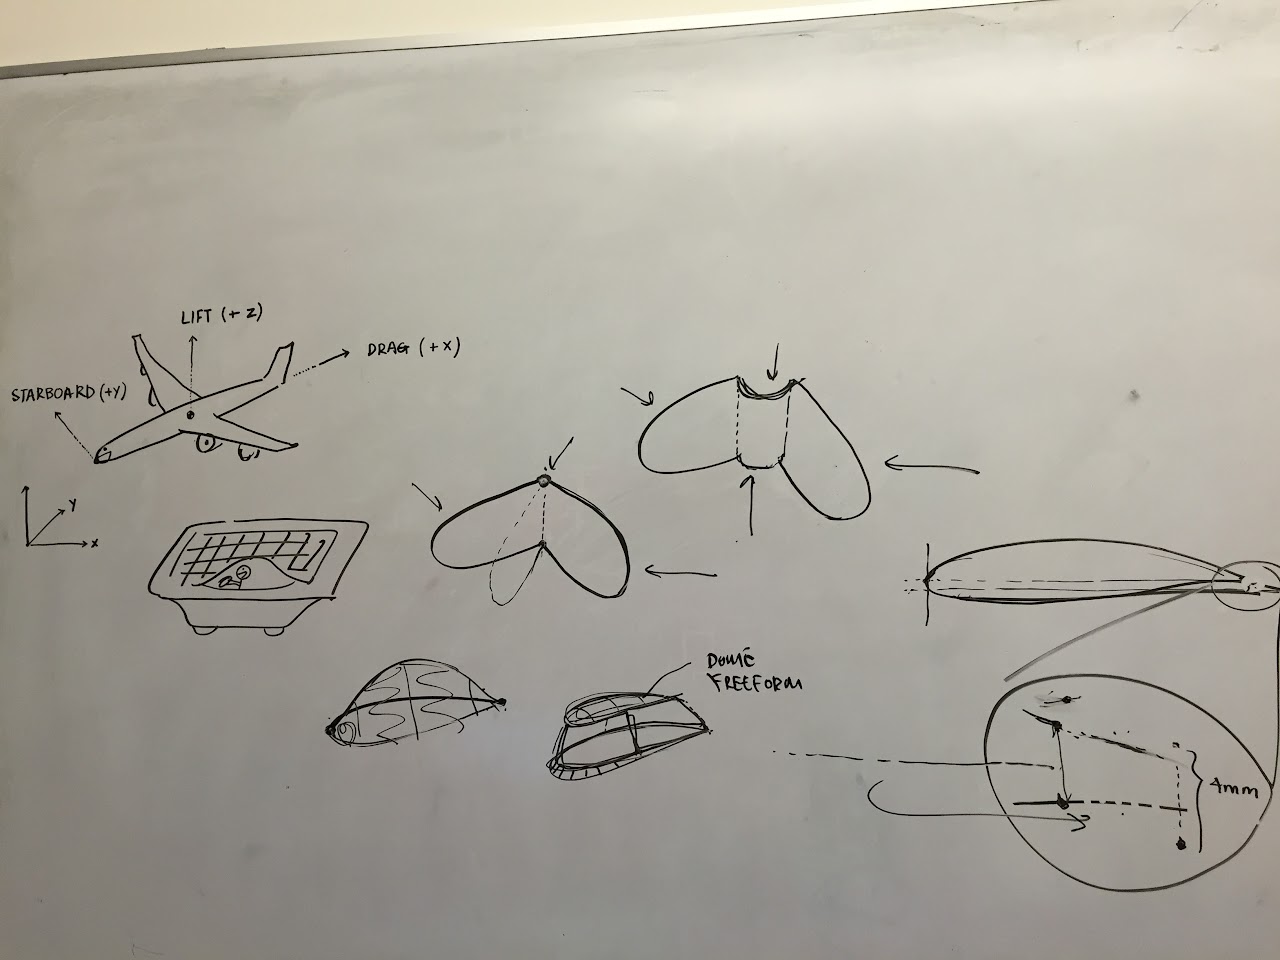 LIFT (+ Z)
DRAG (+ X)
STARBOARD (+Y)
Y
X
DOME
FREEFORM
4mm